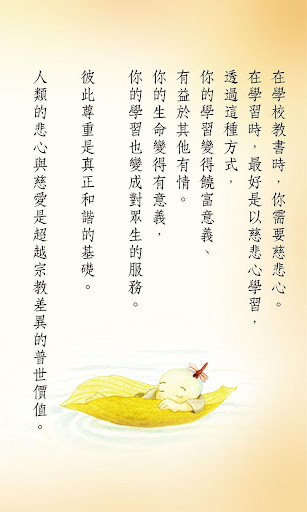 在學校教書時，你需要慈悲心。
在學習時，最好是以慈悲心學習，
透過這種方式，
你的學習變得饒富意義、
有益於其他有情。
你的生命變得有意義，
你的學習也變成對眾生的服務。
彼此尊重是真正和諧的基礎。
人類的悲心與慈愛是超越宗教差異的普世價值。